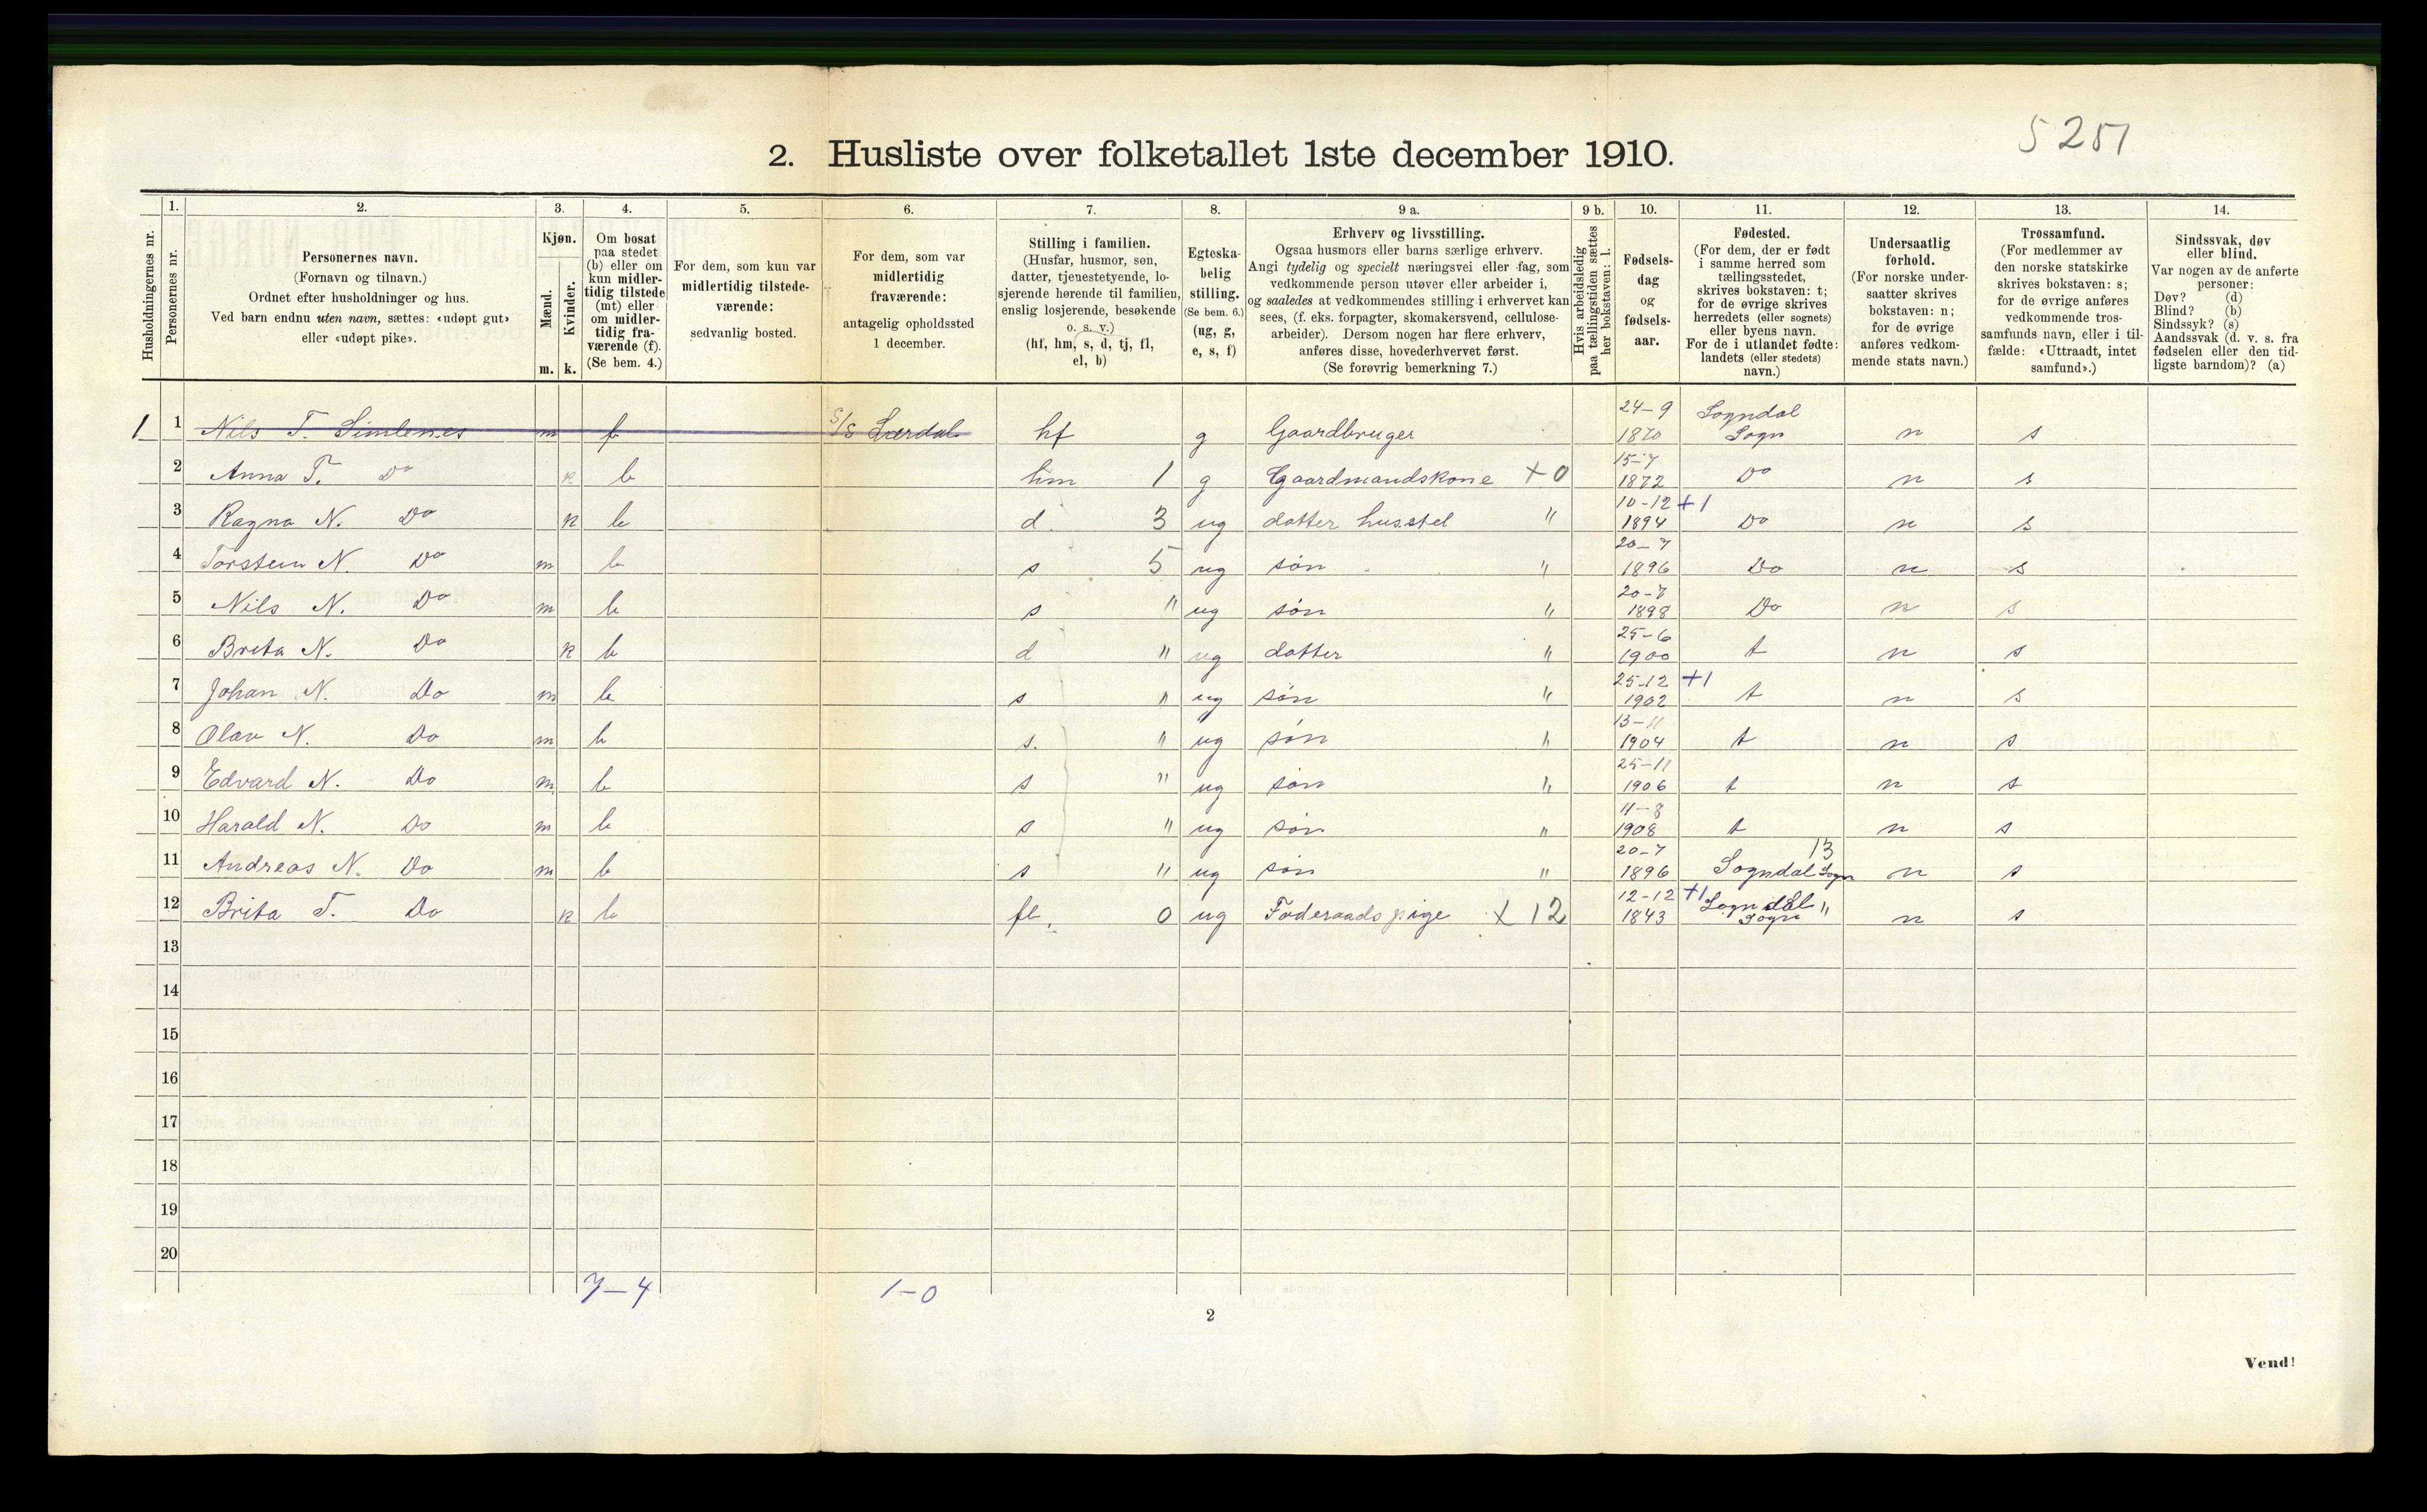 5251
2. Husliste over folketallet 1ste december 1910.
Husholdningernes nr.
1.
Personernes nr.
2.
Personernes navn.
(Fornavn og tilnavn.)
Ordnet efter husholdninger og hus.
Ved barn endnu uten navn, sættes: «udøpt gut»
eller «udøpt pike».
3.
Kjøn.
Mænd.
Kvinder.
m. k.
4.
Om bosat
paa stedet
(b) eller om
kun midler-
tidig tilstede
(mt) eller
om midler-
tidig fra-
værende (f).
(Se bem. 4.)
5.
For dem, som kun var
midlertidig tilstede-
værende:
sedvanlig bosted.
6.
For dem, som var
midlertidig
fraværende:
antagelig opholdssted
1 december.
7.
Stilling i familien.
(Husfar, husmor, søn,
datter, tjenestetyende, lo-
sjerende hørende til familien,
enslig losjerende, besøkende
o. s. v.)
(hf, hm, s, d, tj, fl,
el, b)
8.
Egteska-
belig
stilling.
(Se bem. 6.)
(ug, g,
e, s, f)
9 a.
Erhverv og livsstilling.
Ogsaa husmors eller barns særlige erhverv.
Angi tydelig og specielt næringsvei eller fag, som
vedkommende person utøver eller arbeider i,
og saaledes at vedkommendes stilling i erhvervet kan
sees, (f. eks. forpagter, skomakersvend, cellulose-
arbeider). Dersom nogen har flere erhverv,
anføres disse, hovederhvervet først.
(Se forøvrig bemerkning 7.)
9 b.
Hvis arbeidsledig
paa tællingstiden sættes
her bokstaven: l.
10.
Fødsels-
dag
og
fødsels-
aar.
11.
Fødested.
(For dem, der er født
i samme herred som
tællingsstedet,
skrives bokstaven: t;
for de øvrige skrives
herredets (eller sognets)
eller byens navn.
For de i utlandet fødte:
landets (eller stedets)
navn.)
12.
Undersaatlig
forhold.
(For norske under-
saatter skrives
bokstaven: n;
for de øvrige
anføres vedkom-
mende stats navn.)
13.
Trossamfund.
(For medlemmer av
den norske statskirke
skrives bokstaven: s;
for de øvrige anføres
vedkommende tros-
samfunds navn, eller i til-
fælde: «Uttraadt, intet
samfund».)
14.
Sindssvak, døv
eller blind.
Var nogen av de anførte
personer:
Døv? (d)
Blind? (b)
Sindssyk? (s)
Aandssvak (d. v. s. fra
fødselen eller den tid-
ligste barndom)? (a)
1 1 Nils T. m S/S Lærdal hf g Gaardbruger 24-9 1870 Sogndal Sogn n s
2 Anna T. Do k b hm 1 g Gaardmandskone +0 15-7 1872 Do n s
3 Ragna N. Do k b d. 3 ug datter husstel " 10-12 +1 1894 Do n s
4 Torstein N. Do m b s 5 ug søn " 20-7 1896 Do n s
5 Nils N. Do m b s " ug søn " 1898 Do n s
6 Brita N. Do k b d " ug datter " 25-6 1900 t n s
7 Johan N. Do m b s " ug søn " 25-12 +1 1902 t n s
8 Olav N. Do m b s. " ug søn " 13-11 1904 t n s
9 Edvard N. Do m b s " ug søn " 25-11 1906 t n s
10 Harald N. Do m b s " ug søn " 1908 t n s
11 Andreas N. Do m b s " ug søn " 20-7 1896 13 Sogndal Sogn n s
12 Brita T. Do k b fl. 0 ug Føderaadspige X 12 12-12 +1 1843 Sogndal " Sogn n s
13
14
15
16
17
18
19
20
7-4 1-0
2
Vend!